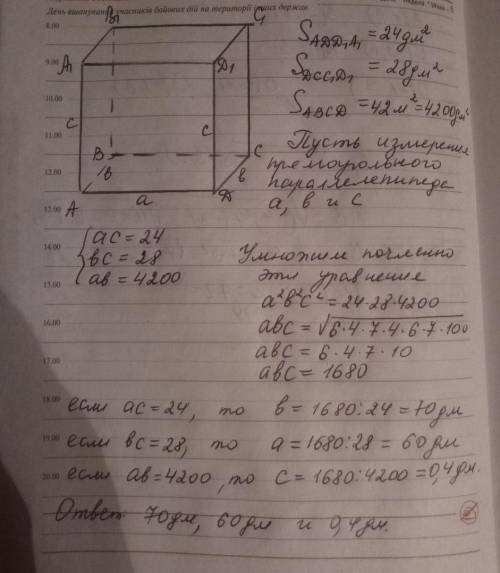 День вшанування учасників бойових дій на території інших держав
8.00
9.00
10.00
11.00
12.00
13.00
14.00
15.00
16.00
17.00
18.00
19.00
20.00
B₁
C₁
A₁
D₁
c
c
B
C
в
в
A
a
D
S_ADD₁A₁ = 24дм²
S_DCC₁D₁ = 28дм²
S_ABCD = 42м² = 4200дм²
Пусть измерения
прямоугольного
параллелепипеда
a, в и c
{ ac = 24
вc = 28
aв = 4200
Умножим почленно
эти уравнения
a²в²c² = 24·28·4200
aвc = √6·4·7·4·6·7·100
aвc = 6·4·7·10
aвc = 1680
если ac = 24, то в = 1680:24 = 70дм
если вc = 28, то a = 1680:28 = 60дм
если aв = 4200, то c = 1680:4200 = 0,4дм.
Ответ: 70дм, 60дм и 0,4дм.